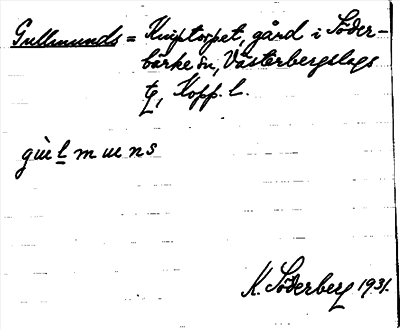 Gullmunds = Kniptorpet, gård i Söder-
bärke sn, Västerbergslags
tg, Kopp. l.
gùl̲muns
K. Söderberg 1931.